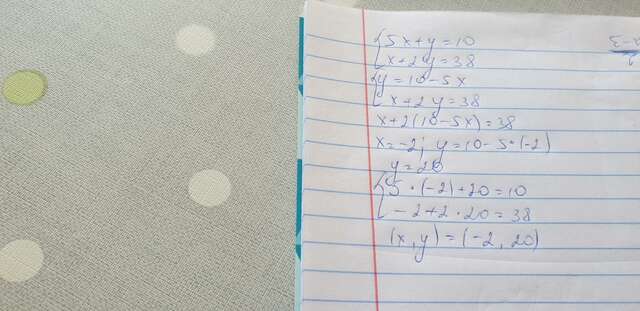 {5x+y=10
{x+2y=38
{y=10-5x
{x+2y=38
x+2(10-5x)=38
x=-2; y=10-5·(-2)
y=20
{5·(-2)+20=10
{-2+2·20=38
(x,y)=(-2,20)